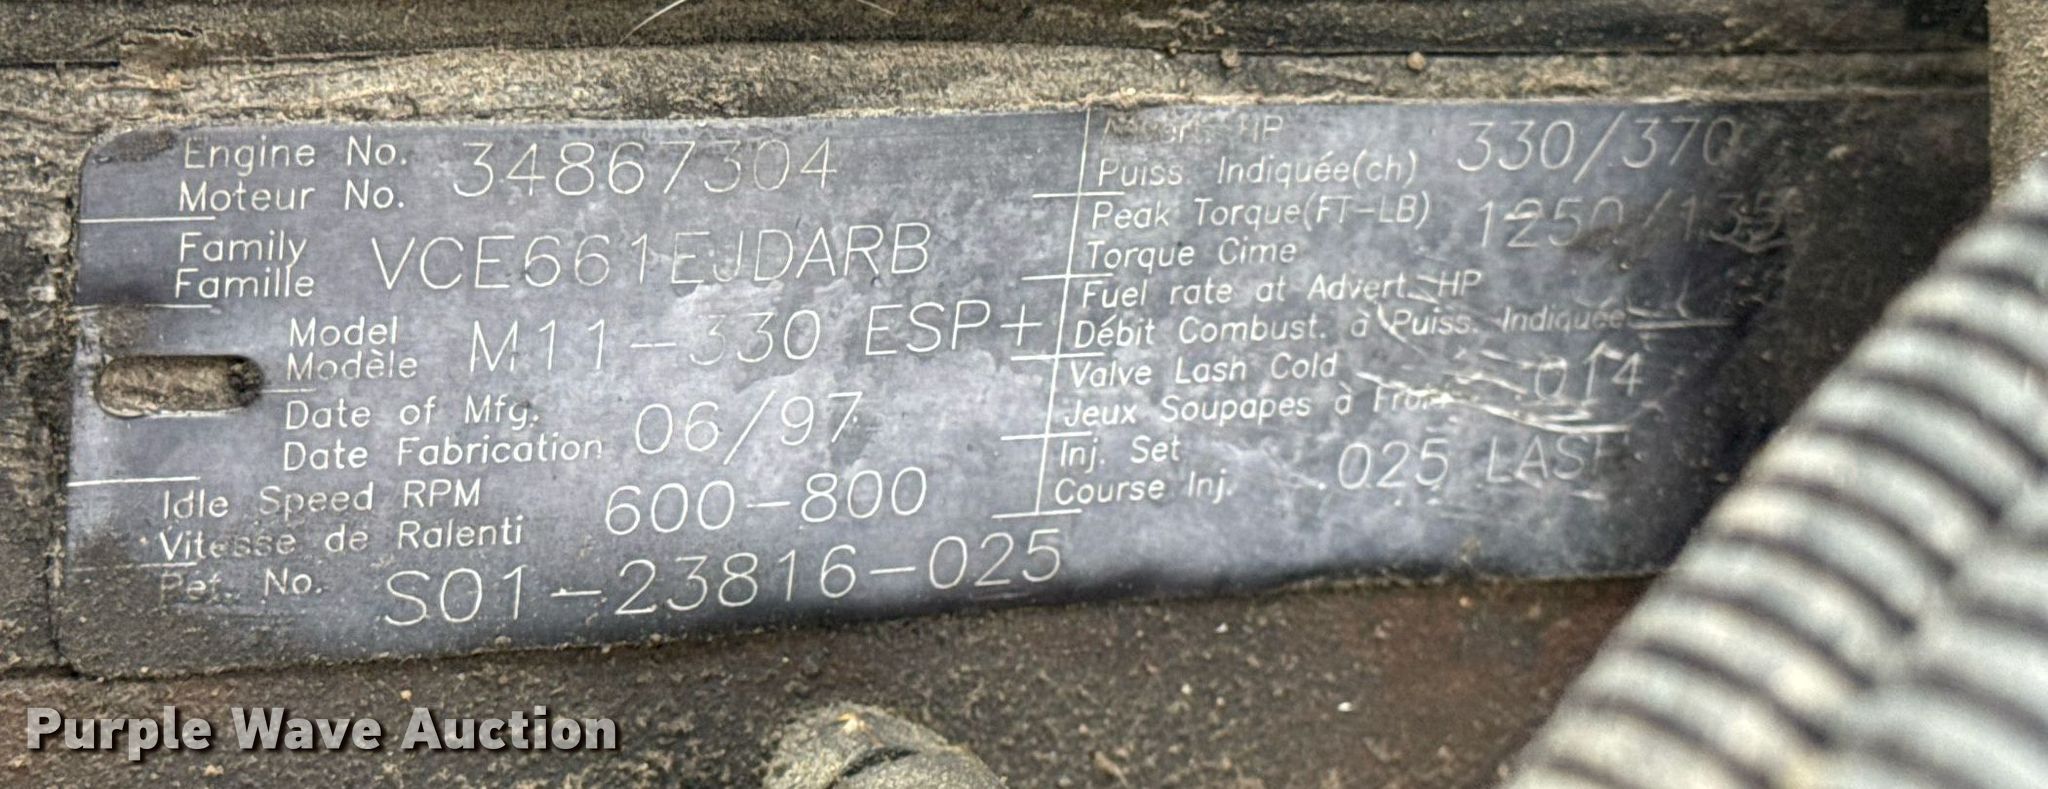 Engine No.
Moteur No.
34867304
Family
Famille
VCE661EJDARB
Model
Modèle
M11-330 ESP+
Date of Mfg.
Date Fabrication
06/97
Idle Speed RPM
Vitesse de Ralenti
600-800
Ref. No.
S01-23816-025
Advert. HP
Puiss. Indiquée(ch)
330/370
Peak Torque(FT-LB)
Torque Cime
Fuel rate at Advert. HP
Débit Combust. à Puiss. Indiquée
Valve Lash Cold
Jeux Soupapes à Froid
.014
Inj. Set
Course Inj.
.025 LASH
Purple Wave Auction